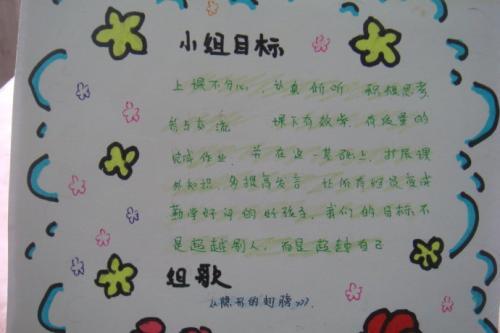 小组目标
上课不分心,认真倾听 积极思考
参与交流 课下有效率,有质量的
完成作业 并在这一基础上,扩展课
外知识,多提高发言 让所有组员变成
勤学好问的好孩子,我们的目标不
是超越别人,而是超越自己
组歌
《隐形的翅膀》